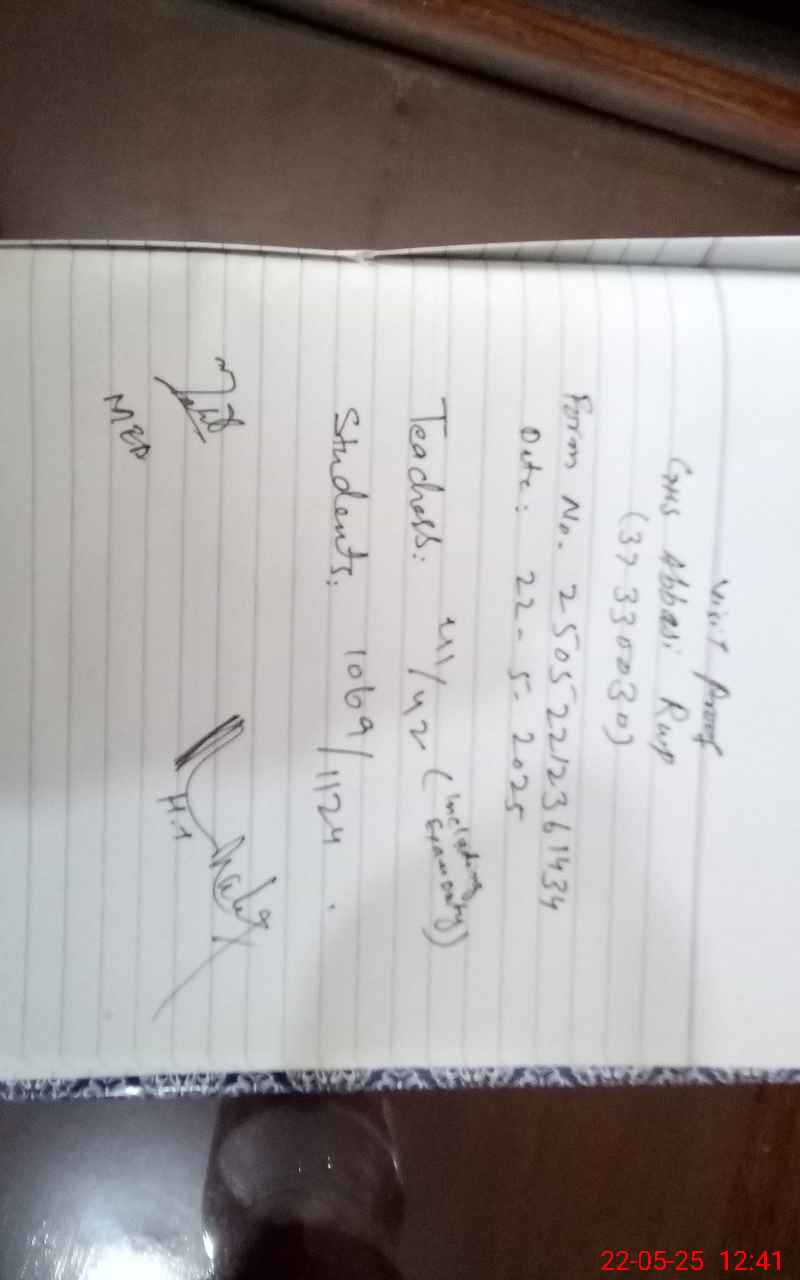 Visit Proof
GHS Abbasi Rwp
(37330030)
Form No. 25052212361434
Date: 22-5-2025
Teachers: 41/42 (including
Students: 1069/1124
MEA
22-05-25 12:41